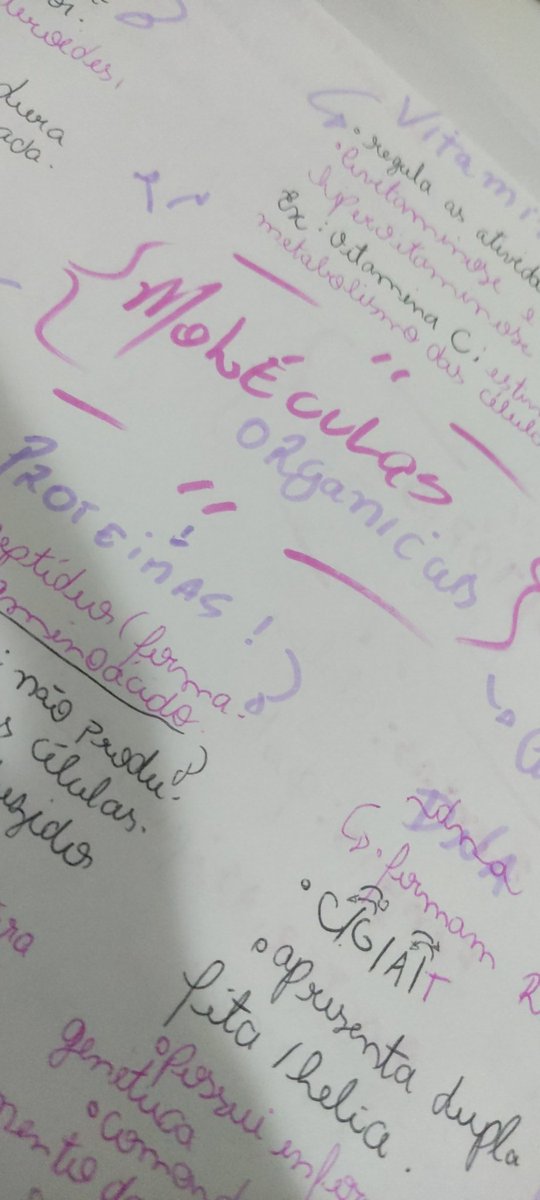 dura
ada.
Vitami
• regula as ativida
• avitaminose e
hipervitaminose
Ex: vitamina C: estim
metabolismo das célula
Moléculas
ORGANICAS
PROTEÍNAS!
eptídeos (forma-
aminoácido
não produ
células.
DNA
formam R
• C/G/A/T
• apresenta dupla
fita / helice.
• possui infor
genetica
• comand
mento d